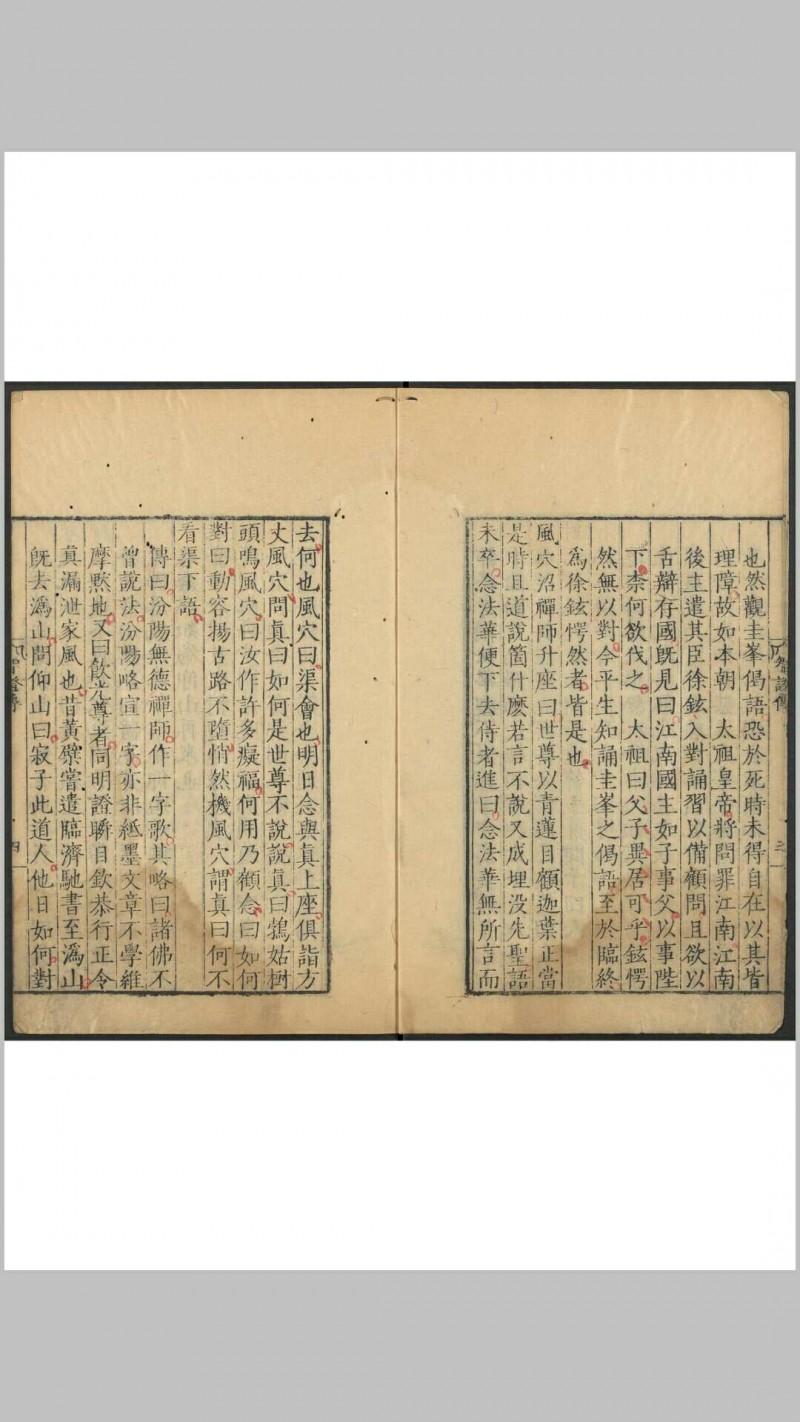 也然觀圭峯偈語恐於死時未得自在以其皆
理障故如本朝　太祖皇帝將問罪江南江南
後主遣其臣徐鉉入對誦習以備顧問且欲以
舌辯存國旣見曰江南國主如子事父以事陛
下柰何欲伐之　太祖曰父子異居可乎鉉愕
然無以對今平生知誦圭峯之偈語至於臨終
爲徐鉉愕然者皆是也
風穴沼禪師升座曰世尊以青蓮目顧迦葉正當
是時且道說箇什麽若言不說又成埋没先聖語
未卒念法華便下去侍者進曰念法華無所言而
三
去何也風穴曰渠會也明日念與真上座俱詣方
丈風穴問真曰如何是世尊不說說真曰鵓姑樹
頭鳴風穴曰汝作許多癡福何用乃顧念曰如何
對曰動容揚古路不墮悄然機風穴謂真曰何不
看渠下語
傳曰汾陽無德禪師作一字歌其略曰諸佛不
曾說法汾陽略宣一字亦非紙墨文章不學維
摩黙地又曰飲光尊者同明證瞬目欽恭行正令
真漏泄家風也昔黃檗甞遣臨濟馳書至溈山
旣去溈山問仰山曰寂子此道人他日如何對
四